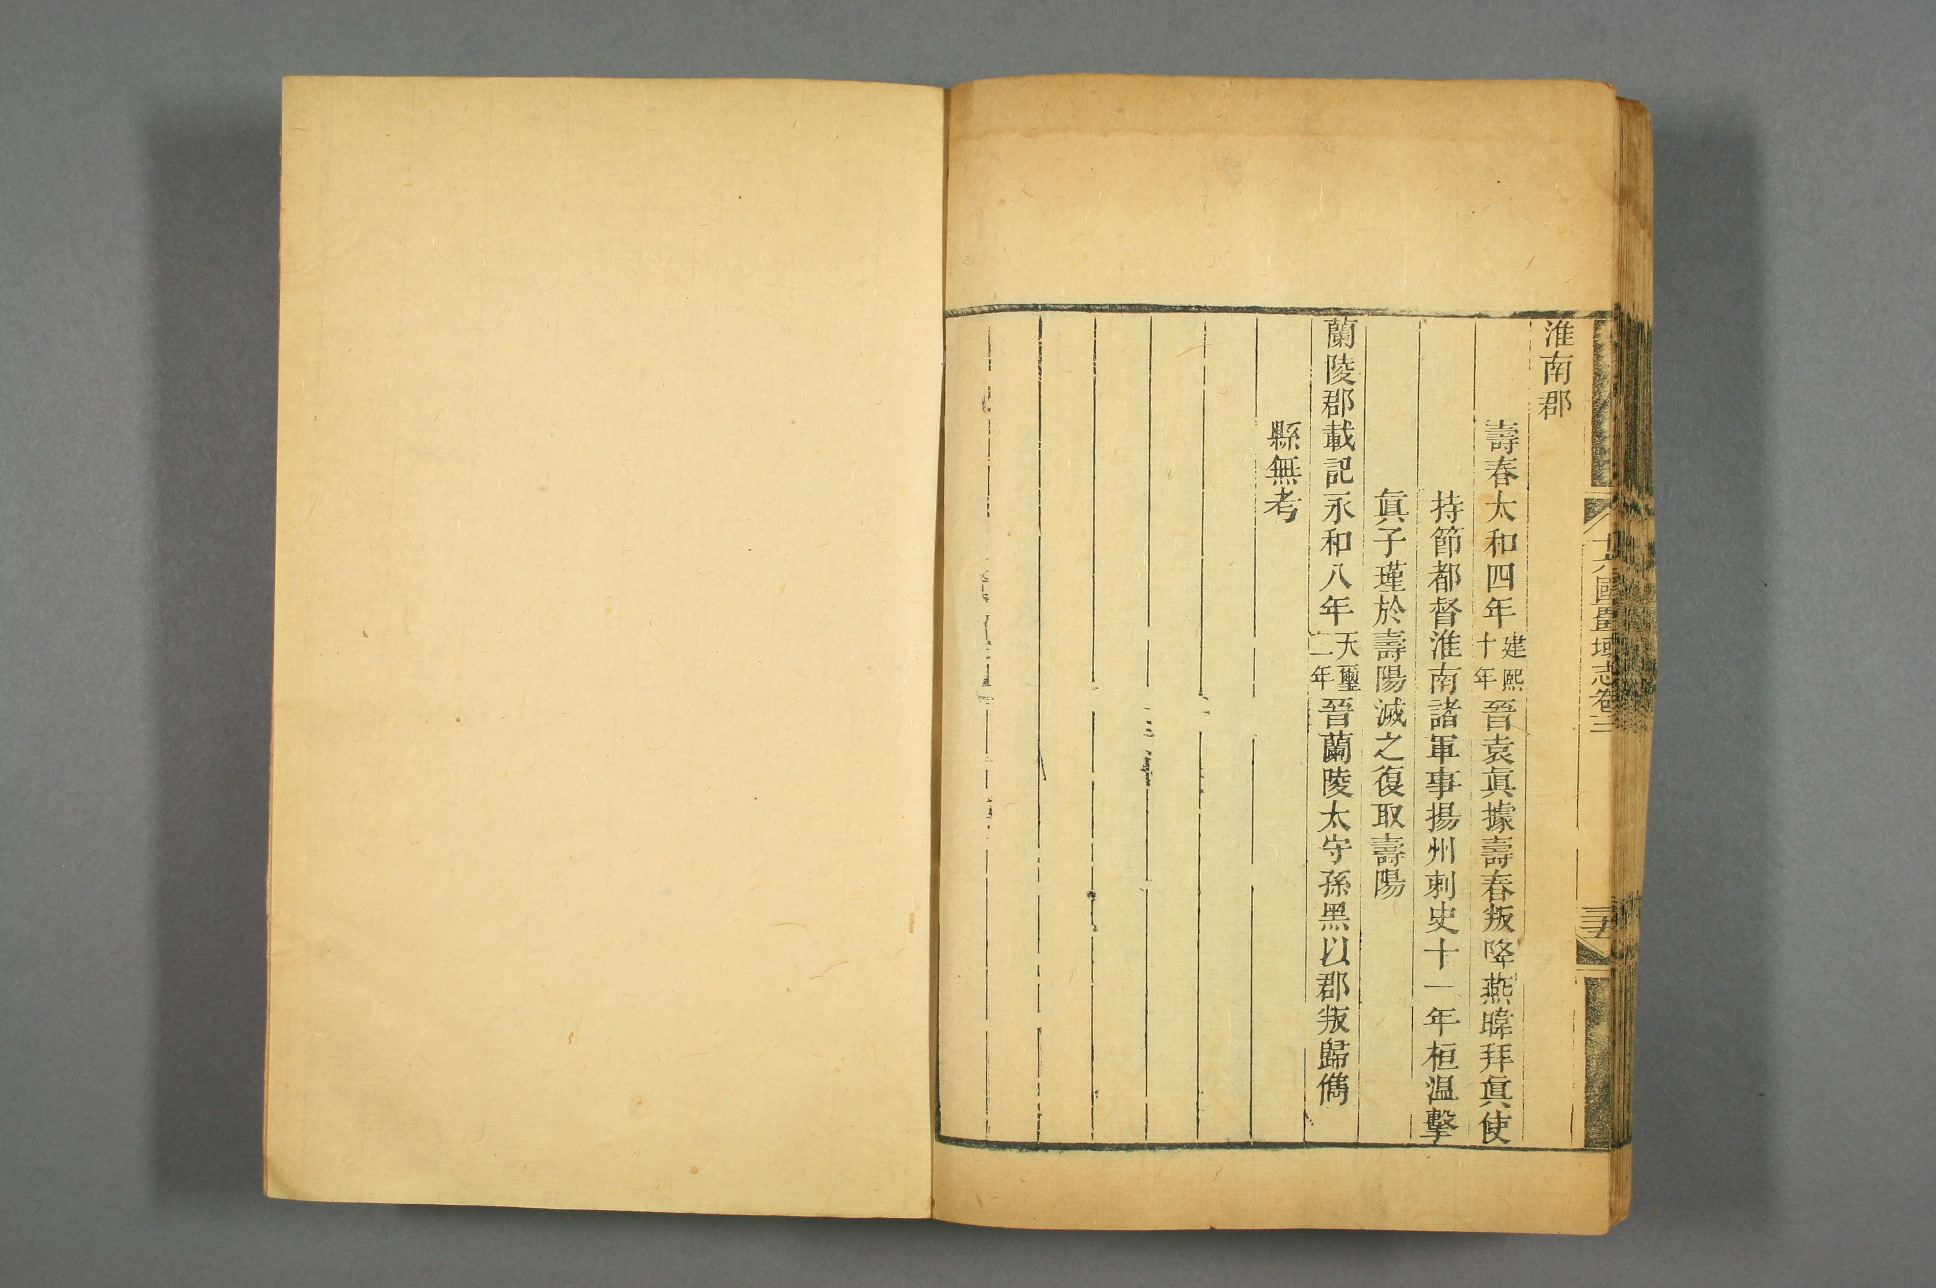 淮南郡
壽春太和四年建熙十年晉袁眞據壽春叛降燕暐拜眞使
持節都督淮南諸軍事揚州刺史十一年桓温擊
眞子瑾於壽陽滅之復取壽陽
蘭陵郡載記永和八年天璽二年晉蘭陵太守孫黑以郡叛歸儁
縣無考
十六國畺域志卷三
三五